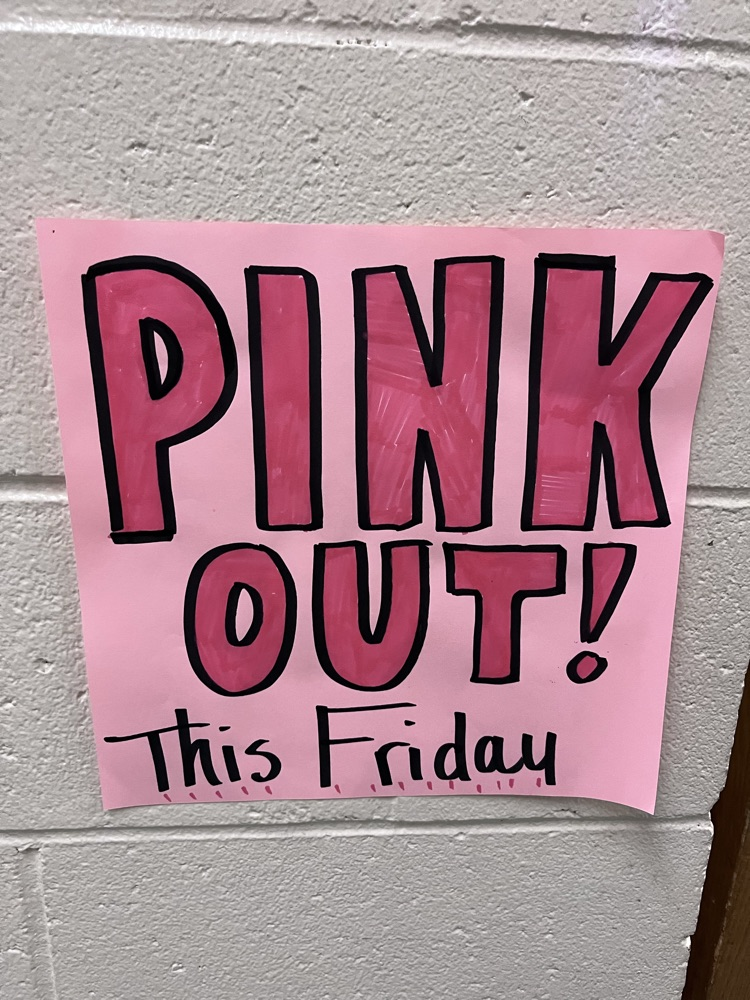 PINK
OUT!
This Friday